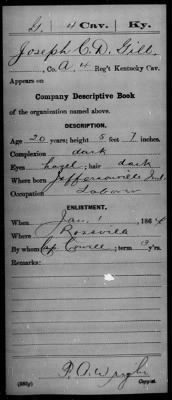 G. 4 Cav. Ky.
Joseph C. D. Gill
, Co. A, 4 Reg't Kentucky Cav.
Appears on
Company Descriptive Book
of the organization named above.
DESCRIPTION.
Age 20 years; height 5 feet 7 inches.
Complexion dark
Eyes hazel; hair dark
Where born Jeffersonville Ind.
Occupation Laborer
ENLISTMENT.
When Jan. 1, 1864
Where Rossville
By whom Cowell; term 3 y'rs.
Remarks:
Copyist.